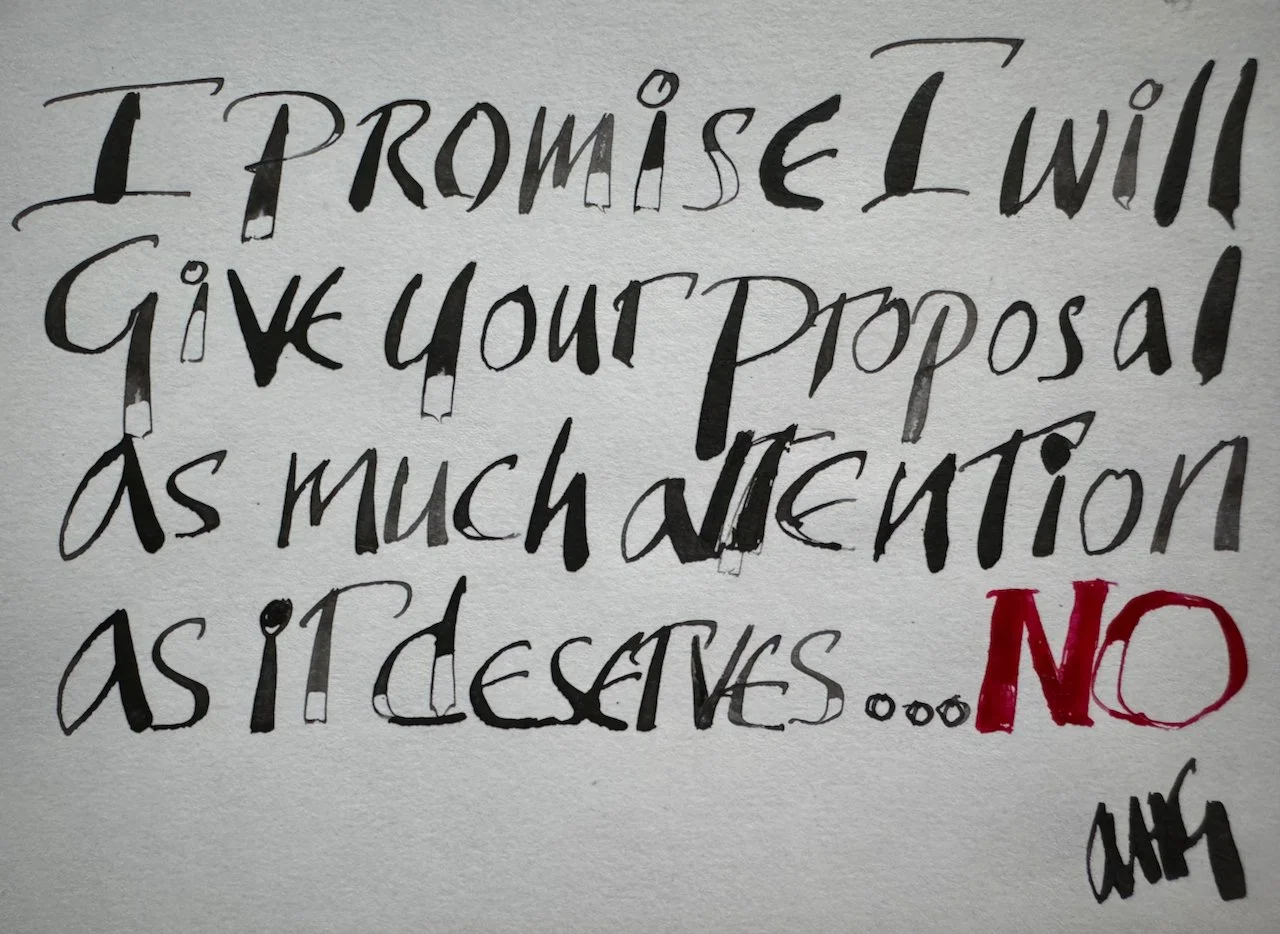 I PROMISE I will
Give your proposal
as much attention
as it deserves...NO